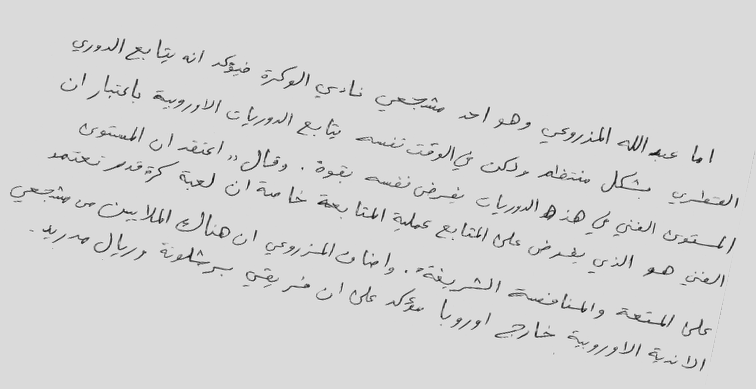 اما عبدالله المزروعي وهو احد مشجعي نادي الوكرة فيؤكد انه يتابع الدوري
القطري بشكل منتظم ولكن في الوقت نفسه يتابع الدوريات الاوروبية باعتبار ان
المستوى الفني في هذه الدوريات يفرض نفسه بقوة . وقال " اعتقد ان المستوى
الفني هو الذي يفرض على المتابع عملية المتابعة خاصة ان لعبة كرة قدم تعتمد
على المتعة والمنافسة الشريفة " . واضاف المزروعي ان هناك الملايين من مشجعي
الاندية الاوروبية خارج اوروبا مؤكد على ان فريقي برشلونة وريال مدريد .